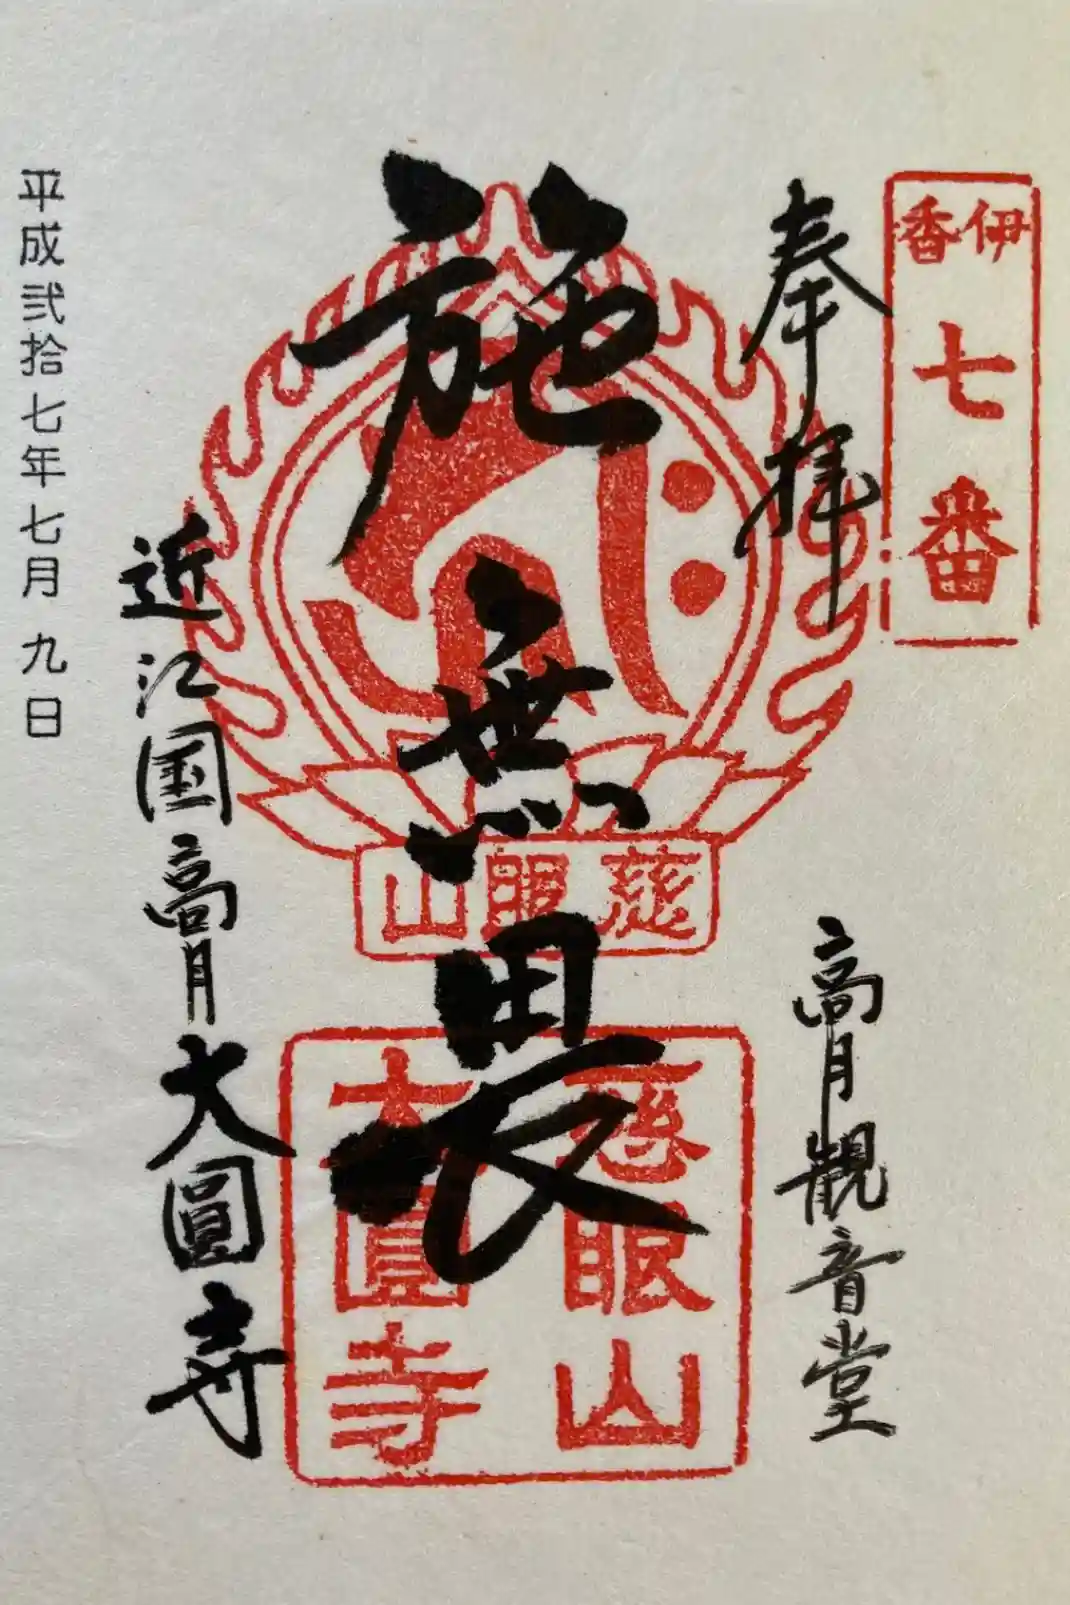 伊香
七番
奉拝
高月觀音堂
施無畏
慈眼山
慈眼山
大圓寺
近江国高月大圓寺
平成弐拾七年七月九日